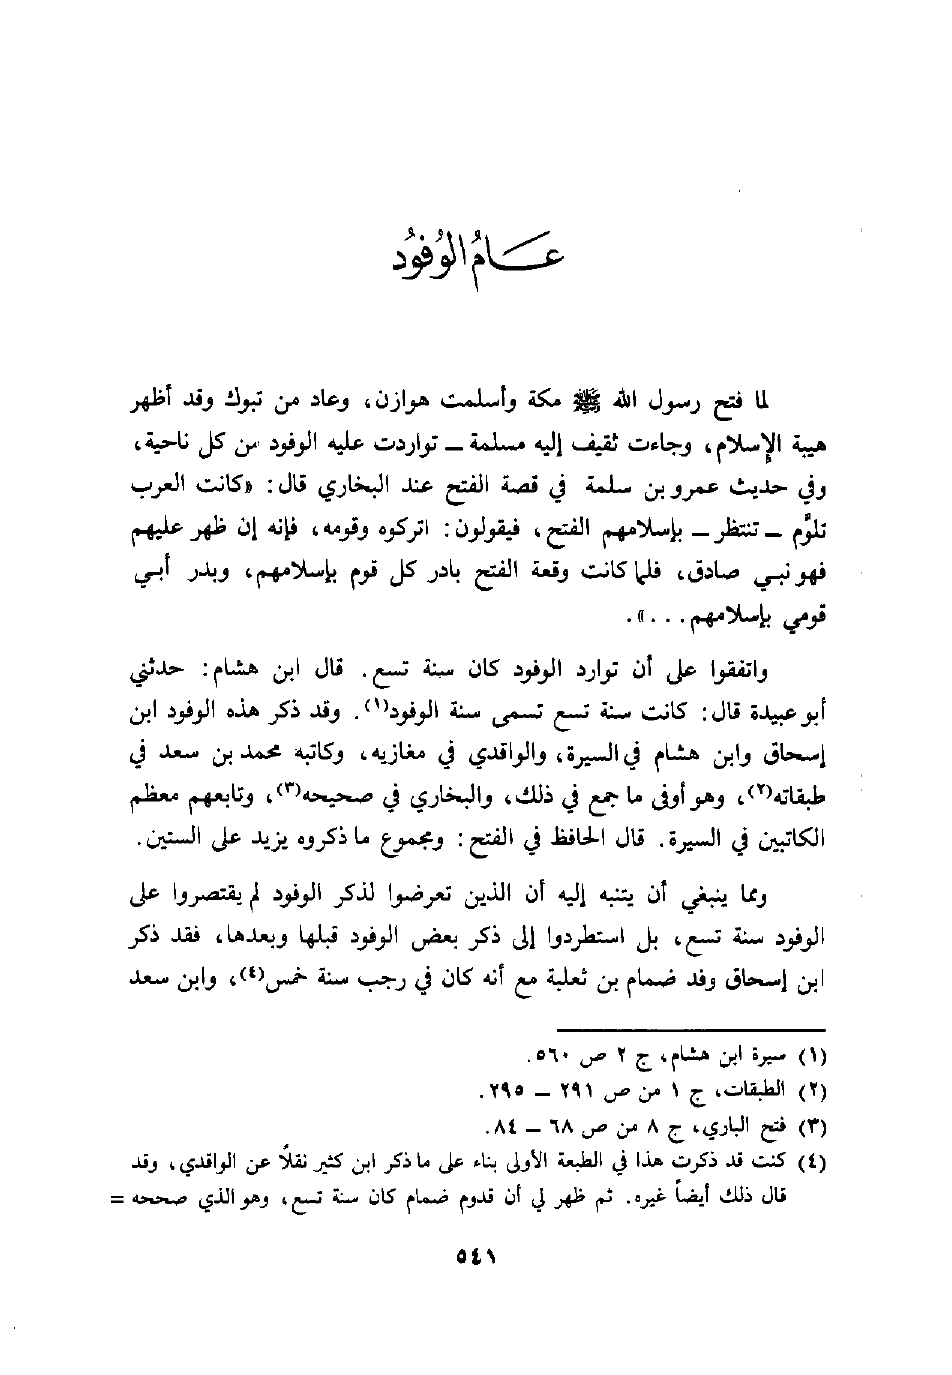 عَامُ الوُفُودُ
لما فتح رسول الله ﷺ مكة وأسلمت هوازن، وعاد من تبوك وقد أظهر
هيبة الإسلام، وجاءت ثقيف إليه مسلمة ــ تواردت عليه الوفود من كل ناحية،
وفي حديث عمرو بن سلمة في قصة الفتح عند البخاري قال: «كانت العرب
تلوَّم ــ تنتظر ــ بإسلامهم الفتح، فيقولون: اتركوه وقومه، فإنه إن ظهر عليهم
فهو نبي صادق، فلما كانت وقعة الفتح بادر كل قوم بإسلامهم، وبدر أبي
قومي بإسلامهم...».
واتفقوا على أن توارد الوفود كان سنة تسع. قال ابن هشام: حدثني
أبو عبيدة قال: كانت سنة تسع تسمى سنة الوفود(١). وقد ذكر هذه الوفود ابن
إسحاق وابن هشام في السيرة، والواقدي في مغازيه، وكاتبه محمد بن سعد في
طبقاته(٢)، وهو أوفى ما جمع في ذلك، والبخاري في صحيحه(٣)، وتابعهم معظم
الكاتبين في السيرة. قال الحافظ في الفتح: ومجموع ما ذكروه يزيد على الستين.
ومما ينبغي أن يتنبه إليه أن الذين تعرضوا لذكر الوفود لم يقتصروا على
الوفود سنة تسع، بل استطردوا إلى ذكر بعض الوفود قبلها وبعدها، فقد ذكر
ابن إسحاق وفد ضمام بن ثعلبة مع أنه كان في رجب سنة خمس(٤)، وابن سعد
(١) سيرة ابن هشام، ج ٢ ص ٥٦٠.
(٢) الطبقات، ج ١ من ص ٢٩١ ــ ٢٩٥.
(٣) فتح الباري، ج ٨ من ص ٦٨ ــ ٨٤.
(٤) كنت قد ذكرت هذا في الطبعة الأولى بناء على ما ذكر ابن كثير نقلاً عن الواقدي، وقد
قال ذلك أيضاً غيره. ثم ظهر لي أن قدوم ضمام كان سنة تسع، وهو الذي صححه =
٥٤١